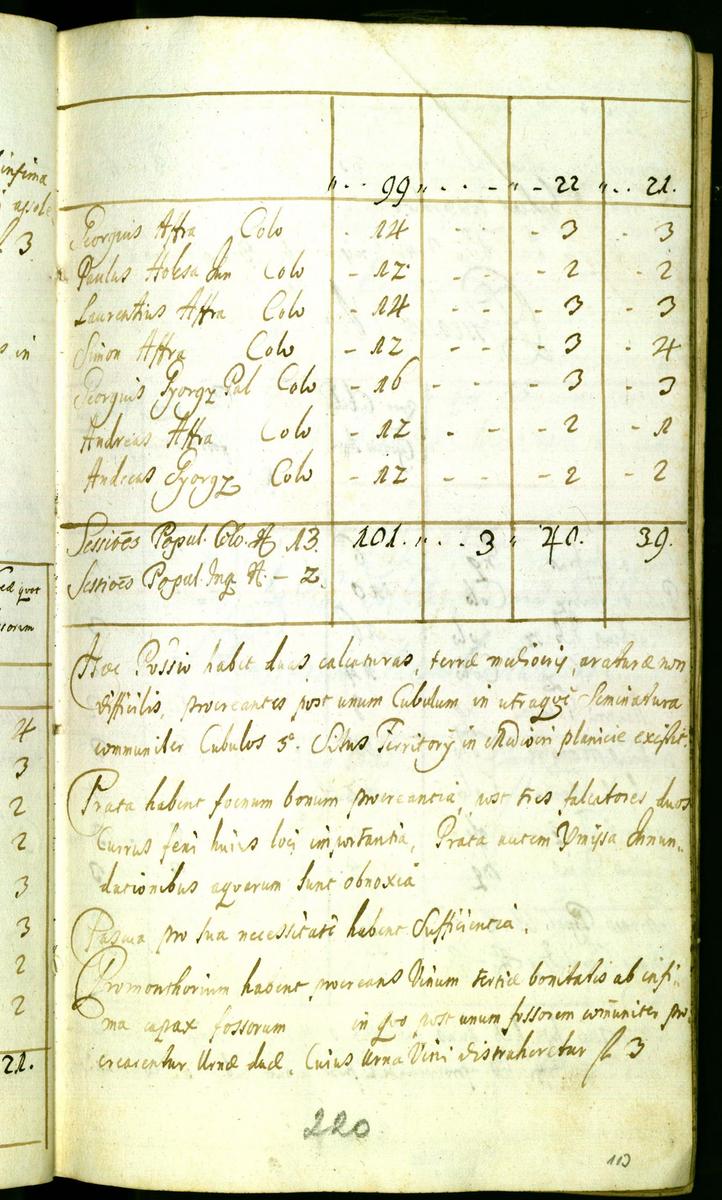 infima
3
s in
quot
4
3
2
2
3
3
2
2
21.
" - - 99 " - - - " - 22 " - - 21.
Georgius Affra Colo - 14 - - - 3 - 3
Paulus Holesa Jun Colo - 12 - - - 2 - 2
Laurentius Affra Colo - 14 - - - 3 - 3
Simon Affra Colo - 12 - - - 3 - 4
Georgius Gyorgy Pal Colo - 16 - - - 3 - 3
Andreas Affra Colo - 12 - - - 2 - 1
Andreas Gyorgy Colo - 12 - 2 - 2
Sessiōes Popul. Colo. 13. 101. " - - 3 " 40. 39.
Sessiōes Popul. Inq. - 2.
Hoc Possio habet duas calcaturas, terræ mediocris, araturæ non
difficilis, procreantes post unum Cubulum in utraque Seminatura
communiter Cubulos 5. Situs Territorij in Mediocri planicie existit.
Prata habent foenum bonum procreantia, post tres falcatores duos
Currus feni huius loci importantia, Prata autem Dmissa Innun-
dationibus aquarum sunt obnoxia
Pascua pro sua necessitate habent Sufficientia.
Promonthorium habent, procreans Vinum tertiæ bonitatis ab infi-
ma capax fossorum in quo post unum fossorem com̄uniter pro-
crearentur Urnæ duæ. Cuius Urna Vini distraheretur fl 3
220
113